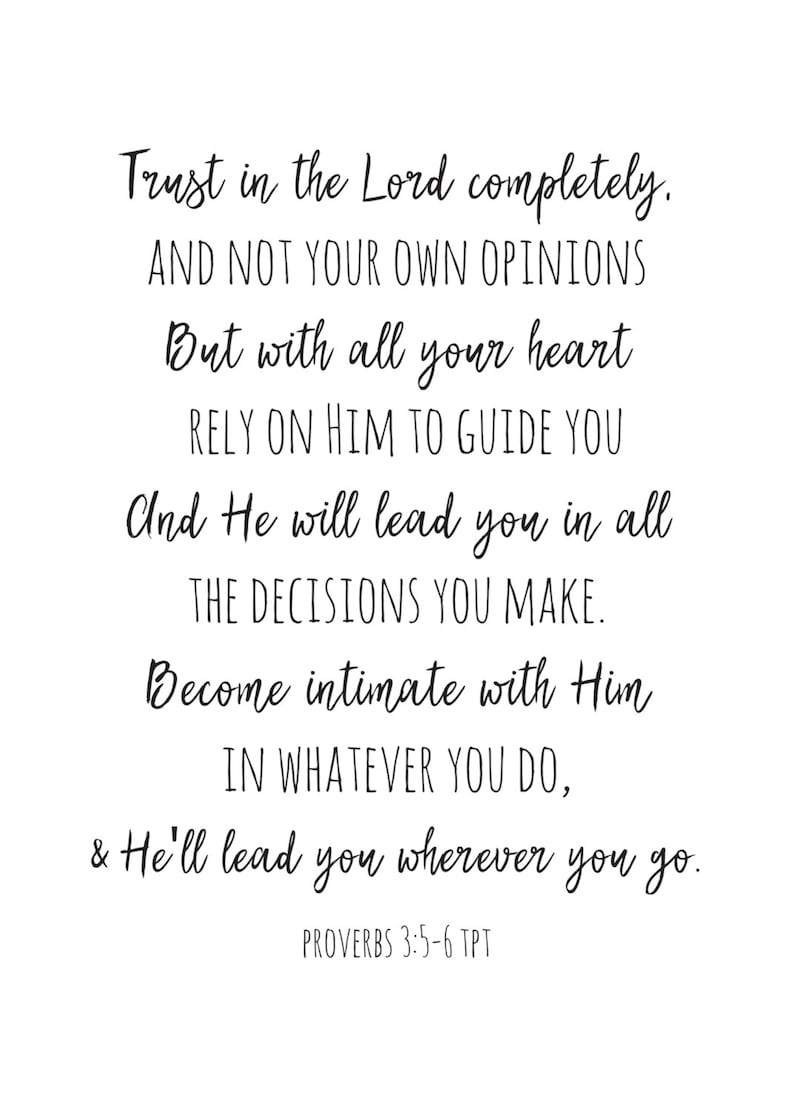 Trust in the Lord completely,
AND NOT YOUR OWN OPINIONS
But with all your heart
RELY ON HIM TO GUIDE YOU
And He will lead you in all
THE DECISIONS YOU MAKE.
Become intimate with Him
IN WHATEVER YOU DO,
& He'll lead you wherever you go.
PROVERBS 3:5-6 TPT